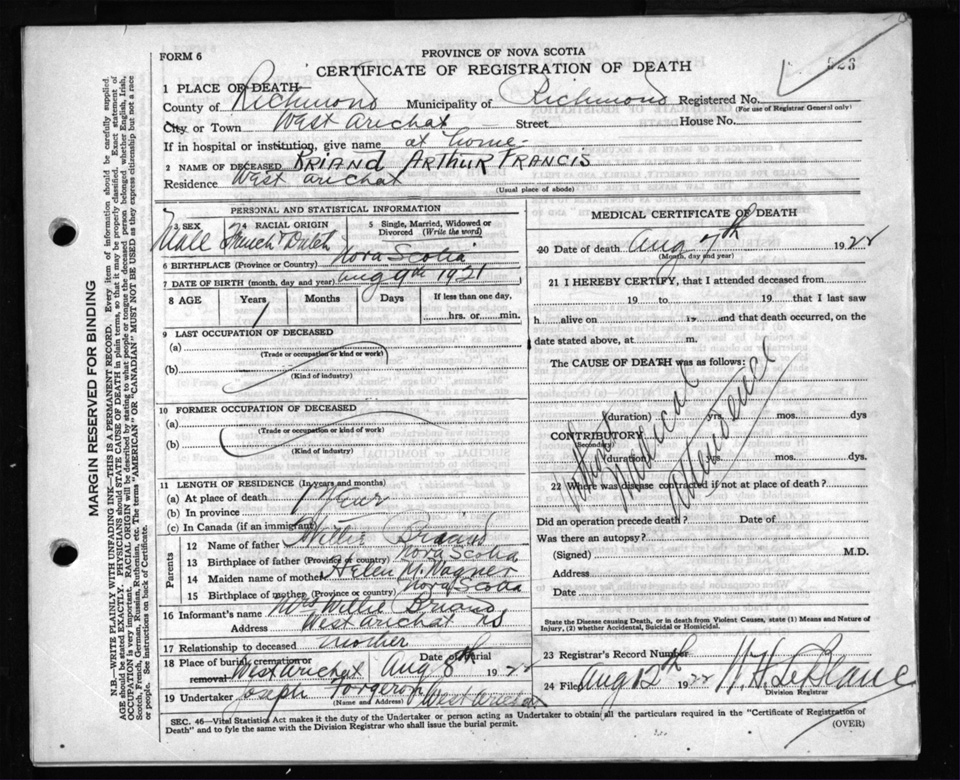 FORM 6
PROVINCE OF NOVA SCOTIA
CERTIFICATE OF REGISTRATION OF DEATH
523
1 PLACE OF DEATH
County of Richmond Municipality of Richmond Registered No.
(For use of Registrar General only)
City or Town West Arichat Street House No.
If in hospital or institution, give name at home
2 NAME OF DECEASED BRIAND ARTHUR FRANCIS
Residence West Arichat
(Usual place of abode)
PERSONAL AND STATISTICAL INFORMATION
3 SEX 4 RACIAL ORIGIN 5 Single, Married, Widowed or Divorced (Write the word)
Male French Dutch
6 BIRTHPLACE (Province or Country) Nova Scotia
7 DATE OF BIRTH (month, day and year) Aug 9th 1921
8 AGE Years Months Days If less than one day,
1 hrs. or min.
9 LAST OCCUPATION OF DECEASED
(a)
(Trade or occupation or kind of work)
(b)
(Kind of industry)
10 FORMER OCCUPATION OF DECEASED
(a)
(Trade or occupation or kind of work)
(b)
(Kind of industry)
11 LENGTH OF RESIDENCE (In years and months)
(a) At place of death 1 Year
(b) In province
(c) In Canada (if an immigrant)
Parents
12 Name of father Willie Briand
13 Birthplace of father (Province or country) Nova Scotia
14 Maiden name of mother Helen M. Wagner
15 Birthplace of mother (Province or country) Nova Scotia
16 Informant's name Mrs Willie Briand
Address West Arichat NS
17 Relationship to deceased mother
18 Place of burial, cremation or removal West Arichat Date of Burial Aug 8th 1922
19 Undertaker Joseph Forgeron West Arichat
(Name and Address)
MEDICAL CERTIFICATE OF DEATH
20 Date of death Aug 7th 1922
(Month, day and year)
21 I HEREBY CERTIFY, that I attended deceased from
19 to 19 that I last saw
h alive on 19 and that death occurred, on the
date stated above, at m.
The CAUSE OF DEATH was as follows:
Without Medical Attendance
(duration) yrs. mos. dys
CONTRIBUTORY
(Secondary)
(duration) yrs. mos. dys.
22 Where was disease contracted if not at place of death?
Did an operation precede death? Date of
Was there an autopsy?
(Signed) M.D.
Address
Date
State the Disease causing Death, or in death from Violent Causes, state (1) Means and Nature of
Injury, (2) whether Accidental, Suicidal or Homicidal.
23 Registrar's Record Number
24 Filed Aug 12th 1922 W H LeBlanc
Division Registrar
SEC. 46—Vital Statistics Act makes it the duty of the Undertaker or person acting as Undertaker to obtain all the particulars required in the "Certificate of Registration of
Death" and to fyle the same with the Division Registrar who shall issue the burial permit. (OVER)
MARGIN RESERVED FOR BINDING
N.B.—WRITE PLAINLY WITH UNFADING INK—THIS IS A PERMANENT RECORD. Every item of information should be carefully supplied.
AGE should be stated EXACTLY. PHYSICIANS should STATE CAUSE OF DEATH in plain terms, so that it may be properly classified. Exact statement of
OCCUPATION is very important. RACIAL ORIGIN will be described by stating to what people or tongue the deceased person belonged whether English, Irish,
Scotch, French, German, Russian, Ruthenian, etc. The terms "AMERICAN" OR "CANADIAN" MUST NOT BE USED as they express citizenship but not a race
or people. See instructions on back of Certificate.